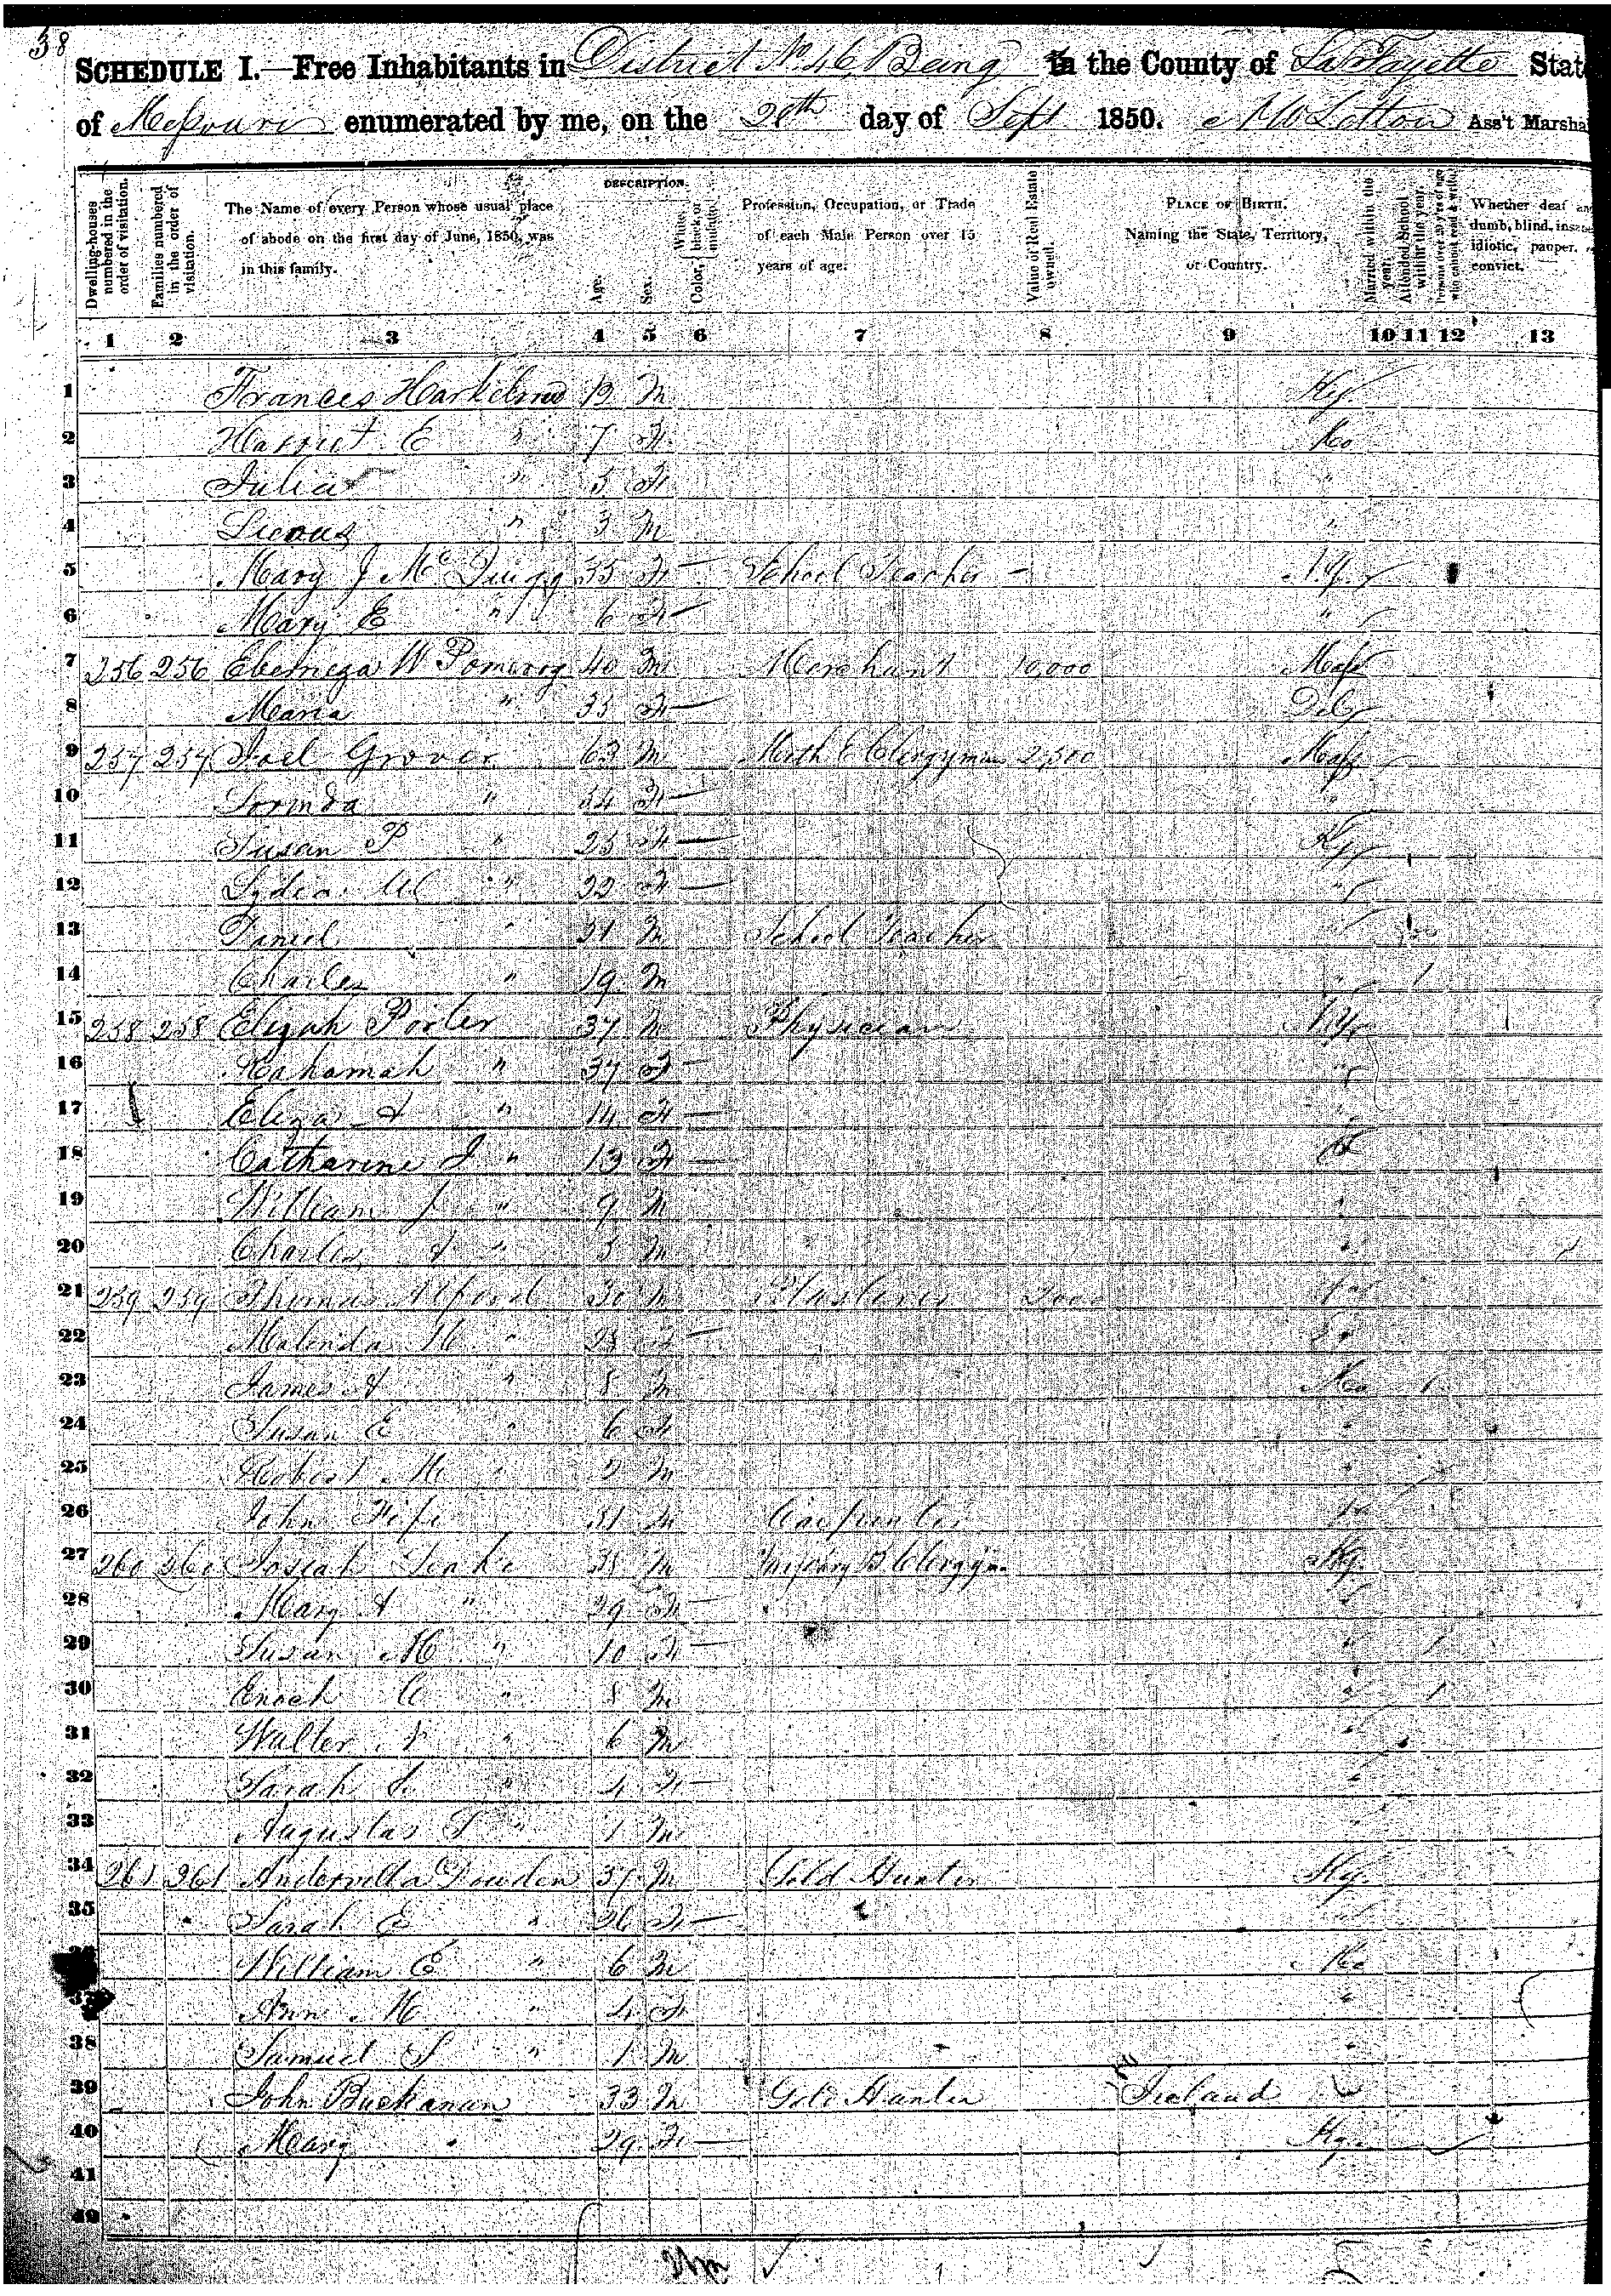 38
SCHEDULE I.—Free Inhabitants in District No 46, Being in the County of La Fayette State
of Missouri enumerated by me, on the 20th day of Sept 1850. Ass't Marshal
DESCRIPTION.
Dwelling-houses numbered in the order of visitation.
Families numbered in the order of visitation.
The Name of every Person whose usual place of abode on the first day of June, 1850, was in this family.
Age.
Sex.
Color, White, black, or mulatto.
Profession, Occupation, or Trade of each Male Person over 15 years of age.
Value of Real Estate owned.
PLACE OF BIRTH. Naming the State, Territory, or Country.
Married within the year.
Attended School within the year.
Persons over 20 y'rs of age who cannot read & write.
Whether deaf and dumb, blind, insane, idiotic, pauper, or convict.
1 2 3 4 5 6 7 8 9 10 11 12 13
1 Frances M Ky
2 Harriet E " 7 F Mo
3 Julia " 5 F "
4 " 3 M "
5 Mary J 35 F School Teacher N.Y.
6 Mary E " 6 F "
7 256 256 W Pomeroy 40 M Merchant 10,000 Mass
8 Maria " 35 F Del
9 257 257 Joel Grover 63 M Meth E Clergyman 2,500 Mass
10 " 54 F "
11 Susan P " 25 F Ky
12 Lydia " 22 F "
13 Daniel " 21 M School Teacher "
14 Charles " 19 M " 1
15 258 258 Elijah Porter 37 M Physician N.Y.
16 " 37 F "
17 Eliza A " 14 F "
18 Catharine J " 13 F
19 William J " 9 M "
20 Charles A " 3 M "
21 259 259 Thomas Alford 30 M Plasterer 2000
22 Malinda M " 25 F
23 James A " 8 M Mo 1
24 Susan E " 6 F "
25 Robert M " 2 M "
26 John Fife 31 M Carpenter
27 260 260 Josiah 38 M B Clergyn. Ky.
28 Mary A " 29 F "
29 Susan M " 10 F " 1
30 Enoch " 8 M " 1
31 Walter " 6 M "
32 Sarah " 4 F "
33 Augustas " 1 M "
34 261 261 Dowden 37 M Gold Hunter Ky.
35 Sarah E " 26 F "
36 William E " 6 M Mo
37 Ann M " 4 F "
38 Samuel S " 1 M "
39 John Buckanan 33 M Gold Hunter Ireland
40 Mary " 29 F Ky.
41
42